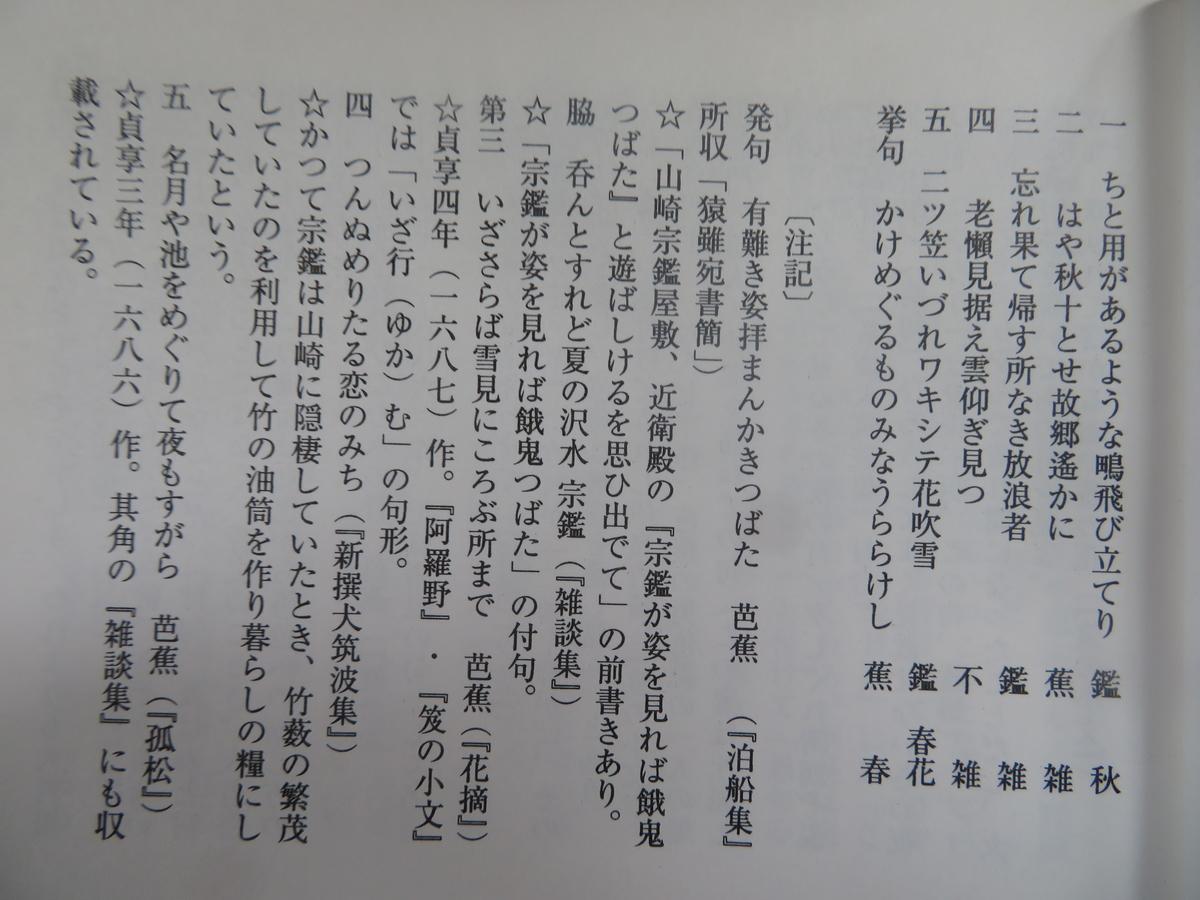 一　ちと用があるような鴫飛び立てり　鑑　秋
二　はや秋十とせ故郷遙かに　蕉　雑
三　忘れ果て帰す所なき放浪者　鑑　雑
四　老懶見据え雲仰ぎ見つ　不　雑
五　二ツ笠いづれワキシテ花吹雪　鑑　春花
挙句　かけめぐるものみなうららけし　蕉　春
〔注記〕
発句　有難き姿拝まんかきつばた　芭蕉　（『泊船集』
所収「猿雖宛書簡」）
☆「山崎宗鑑屋敷、近衛殿の『宗鑑が姿を見れば餓鬼
つばた』と遊ばしけるを思ひ出でて」の前書きあり。
脇　呑んとすれど夏の沢水 宗鑑（『雑談集』）
☆「宗鑑が姿を見れば餓鬼つばた」の付句。
第三　いざさらば雪見にころぶ所まで　芭蕉（『花摘』）
☆貞享四年（一六八七）作。『阿羅野』・『笈の小文』
では「いざ行（ゆか）む」の句形。
四　つんぬめりたる恋のみち（『新撰犬筑波集』）
☆かつて宗鑑は山崎に隠棲していたとき、竹薮の繁茂
していたのを利用して竹の油筒を作り暮らしの糧にし
ていたという。
五　名月や池をめぐりて夜もすがら　芭蕉（『孤松』）
☆貞享三年（一六八六）作。其角の『雑談集』にも収
載されている。